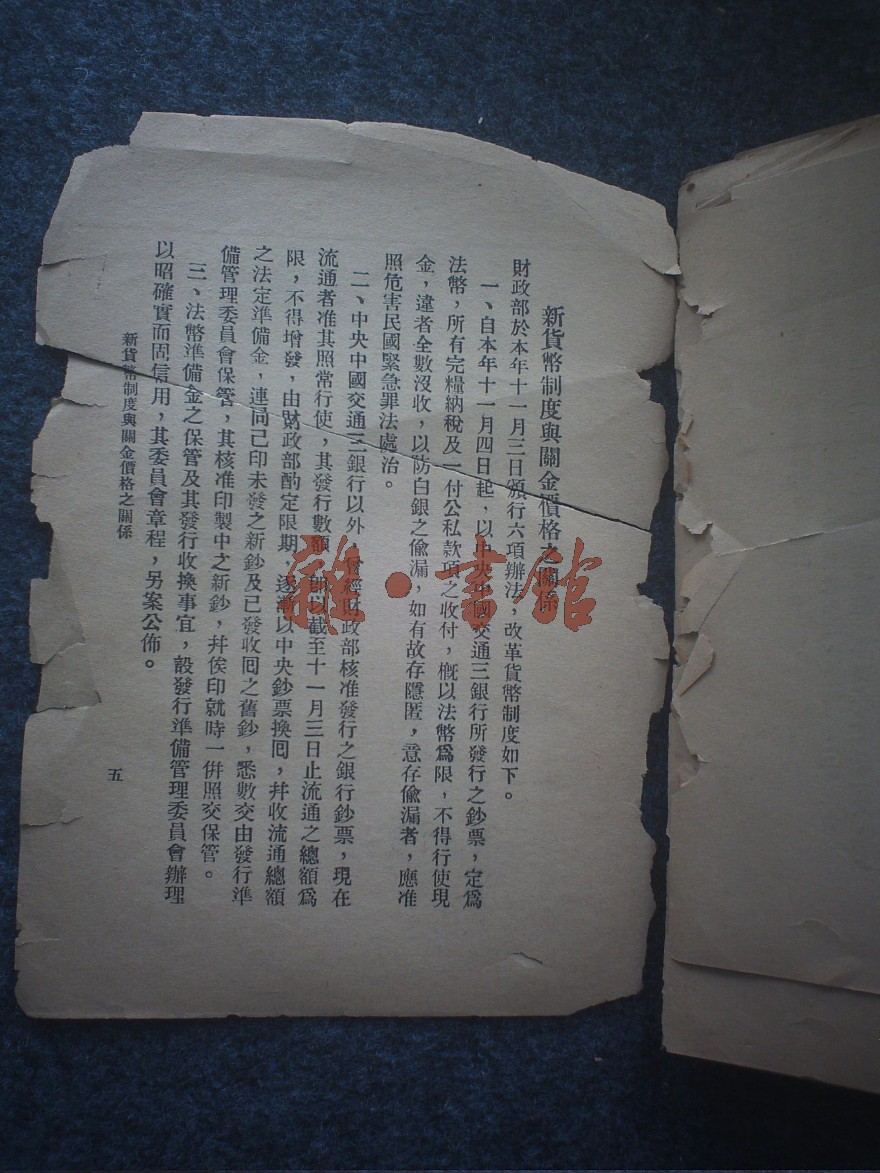 新貨幣制度與關金價格之關係
財政部於本年十一月三日頒行六項辦法，改革貨幣制度如下。
一、自本年十一月四日起，以中央中國交通三銀行所發行之鈔票，定爲
法幣，所有完糧納稅及一付公私款項之收付，槪以法幣爲限，不得行使現
金，違者全數沒收，以防白銀之偸漏，如有故存隱匿，意存偸漏者，應准
照危害民國緊急罪法處治。
二、中央中國交通三銀行以外，曾經財政部核准發行之銀行鈔票，現在
流通者准其照常行使，其發行數額，卽以截至十一月三日止流通之總額爲
限，不得增發，由財政部酌定限期，逐漸以中央鈔票換囘，幷收流通總額
之法定準備金，連同已印未發之新鈔及已發收囘之舊鈔，悉數交由發行準
備管理委員會保管，其核准印製中之新鈔，幷俟印就時一併照交保管。
三、法幣準備金之保管及其發行收換事宜，設發行準備管理委員會辦理
以昭確實而固信用，其委員會章程，另案公佈。
新貨幣制度與關金價格之關係
五
雜·書館